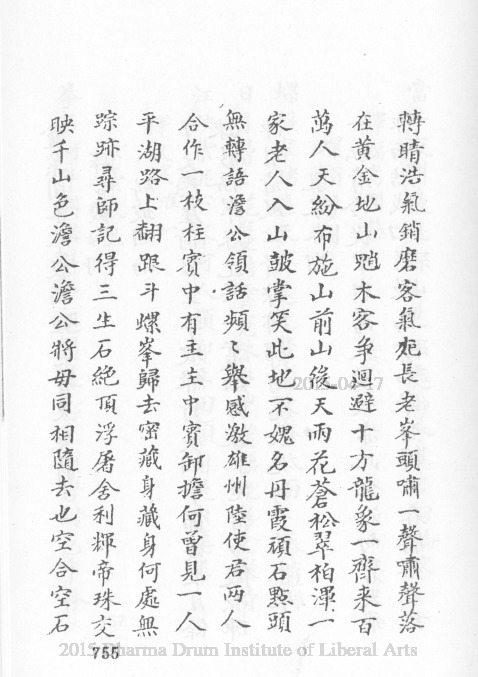 轉晴浩氣銷磨客氣死長老峯頭嘯一聲嘯聲落
在黃金地山魈木客爭迴避十方龍象一齊来百
萬人天紛布施山前山後天雨花蒼松翠柏渾一
家老人入山皷掌笑此地不媿名丹霞頑石點頭
無轉語澹公領話頻〻舉感激雄州陸使君两人
合作一枝柱賓中有主主中賓卸擔何曾見一人
平湖路上翻跟斗螺峯歸去密藏身藏身何處無
踪跡尋師記得三生石絶頂浮屠舍利輝帝珠交
映千山色澹公澹公將毋同相隨去也空合空石
755
2015 Dharma Drum Institute of Liberal Arts